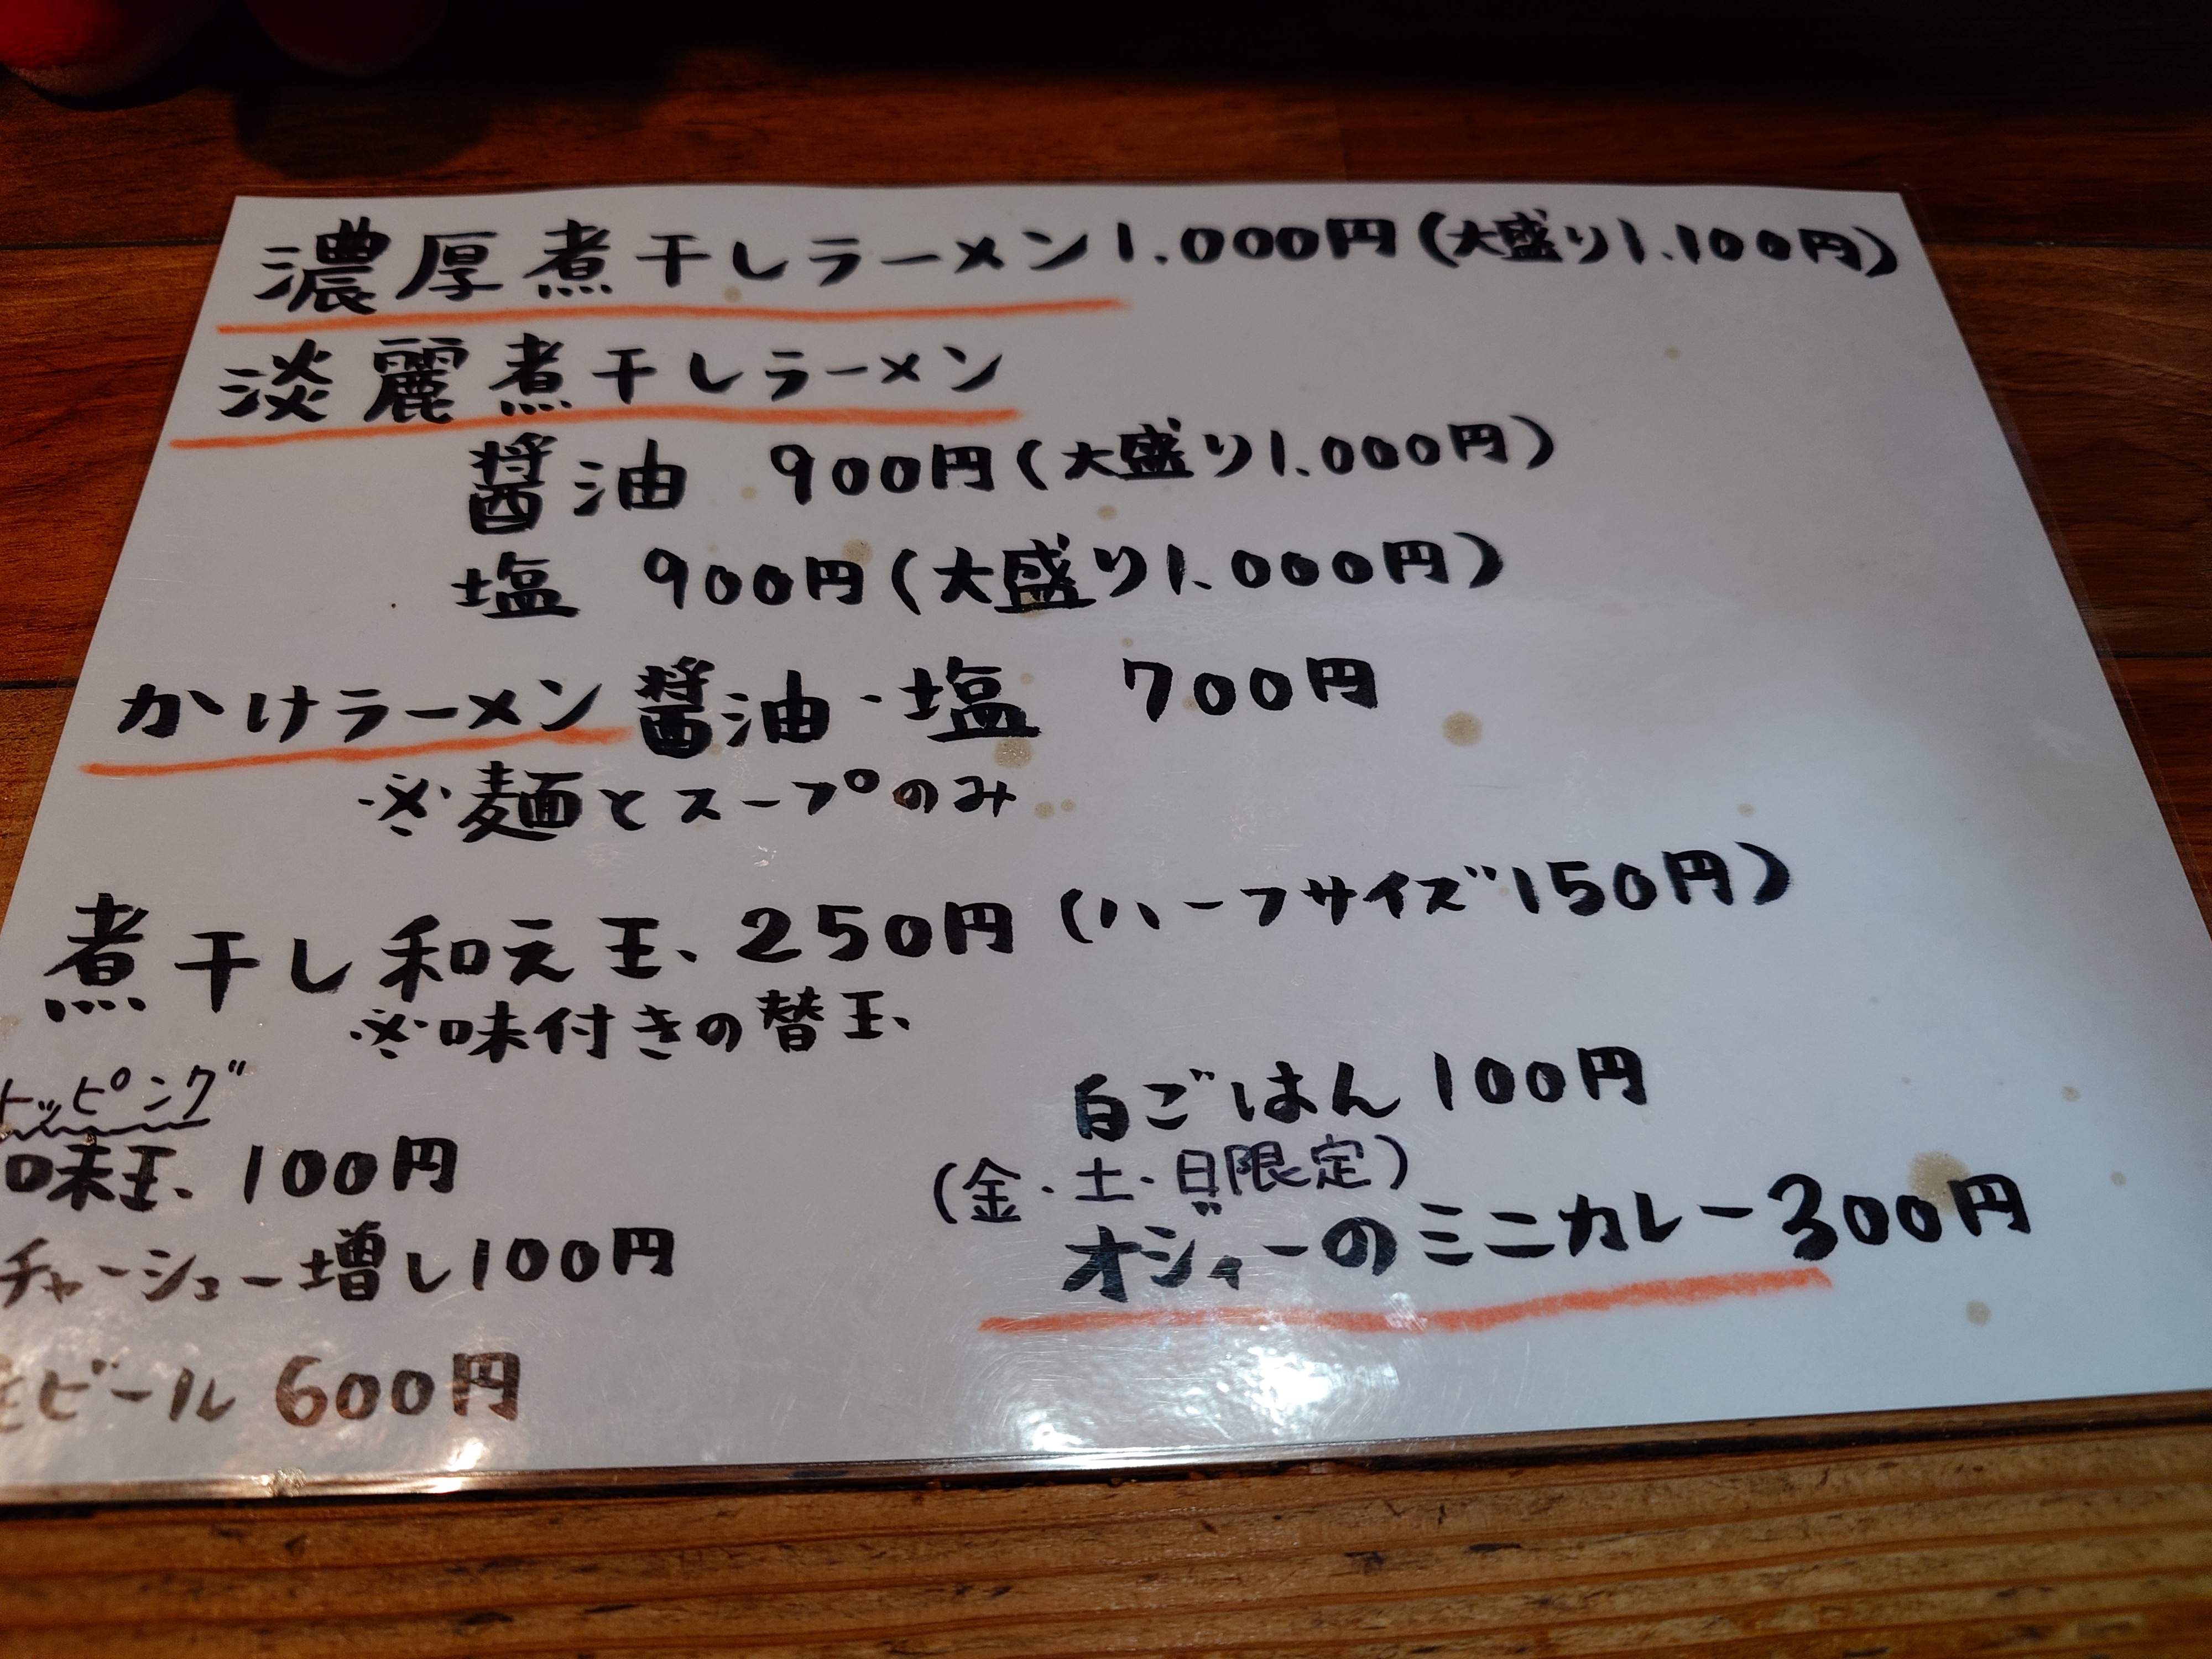 濃厚煮干しラーメン1.000円(大盛り1.100円)
淡麗煮干しラーメン
醤油 900円(大盛り1.000円)
塩 900円(大盛り1.000円)
かけラーメン 醤油・塩 700円
※麺とスープのみ
煮干し和え玉 250円(ハーフサイズ150円)
※味付きの替玉
トッピング
味玉 100円
チャーシュー増し100円
ビール 600円
白ごはん 100円
(金・土・日限定)
オジィーのミニカレー300円